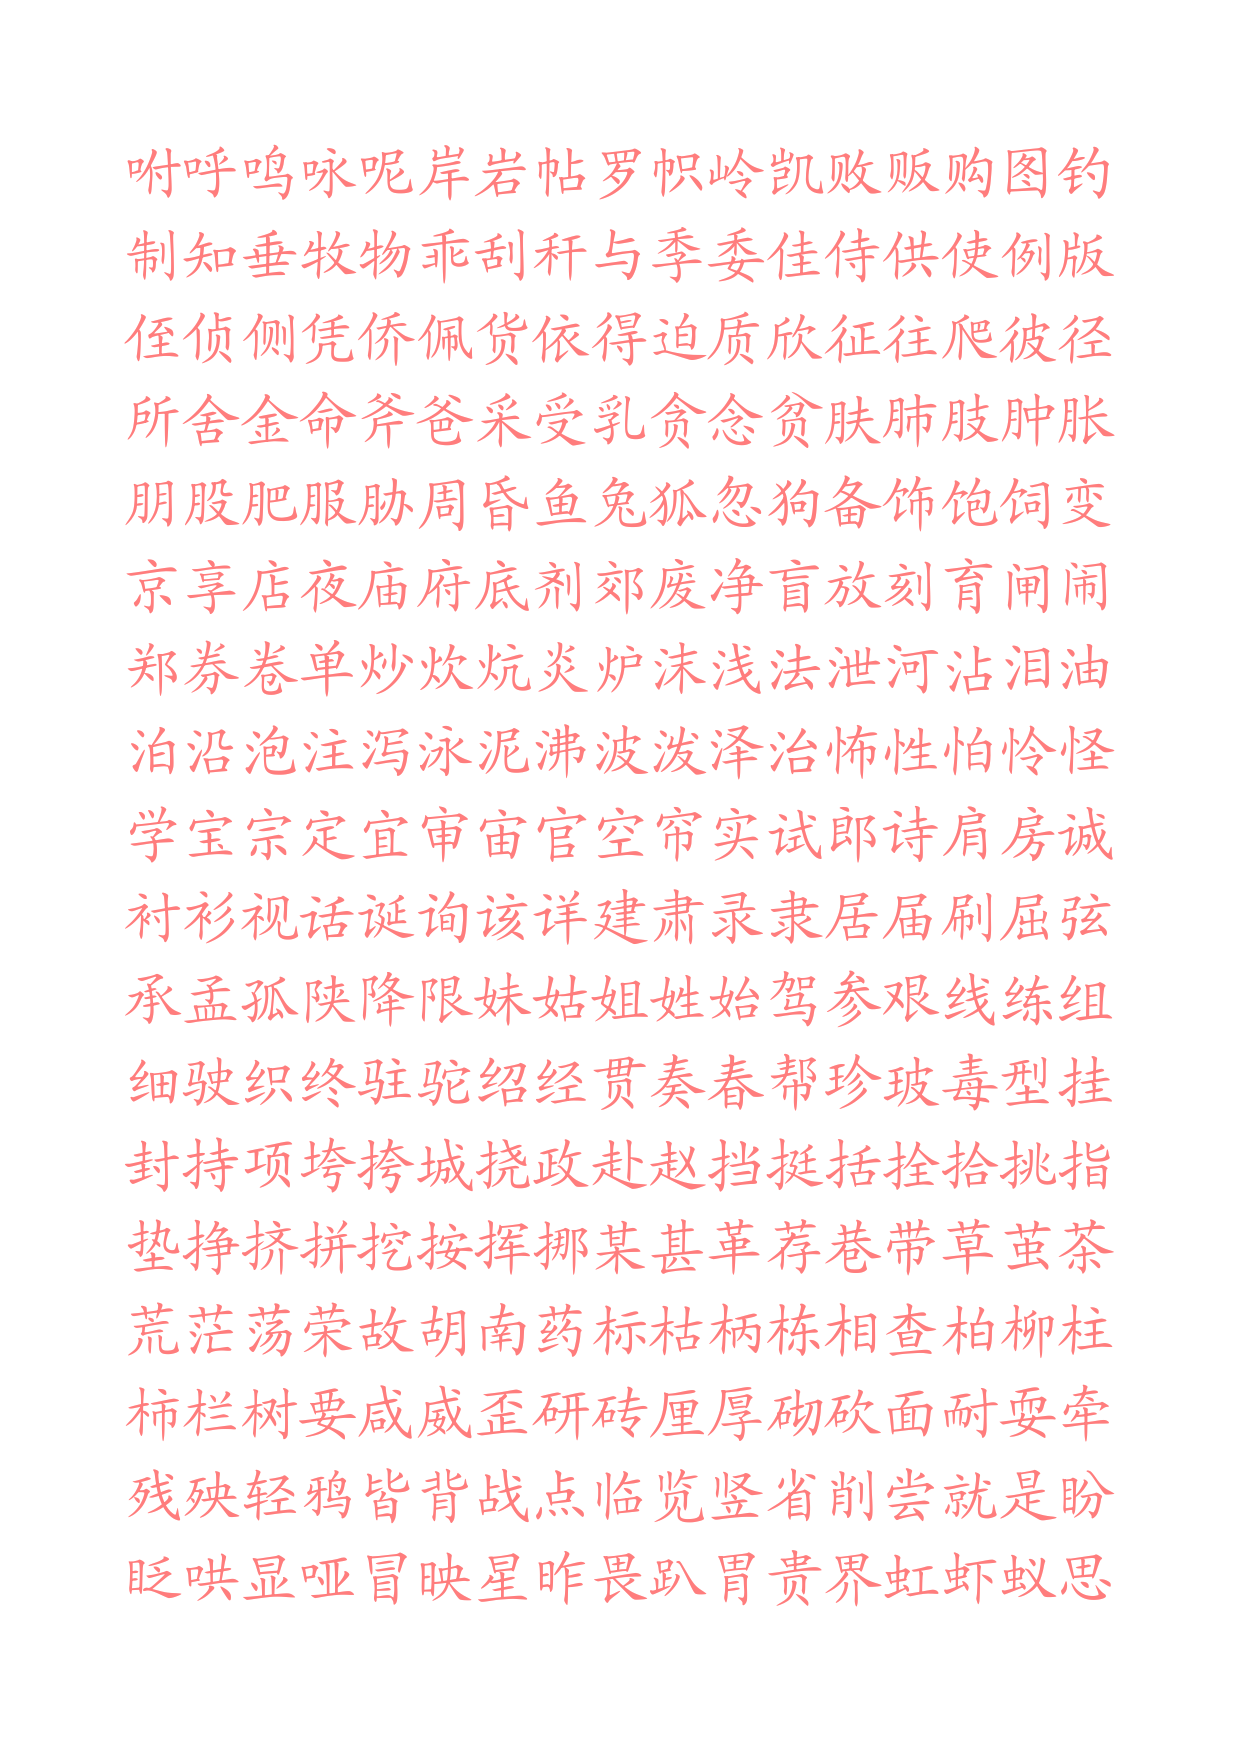 咐呼鸣咏呢岸岩帖罗帜岭凯败贩购图钓
制知垂牧物乖刮秆与季委佳侍供使例版
侄侦侧凭侨佩货依得迫质欣征往爬彼径
所舍金命斧爸采受乳贪念贫肤肺肢肿胀
朋股肥服胁周昏鱼兔狐忽狗备饰饱饲变
京享店夜庙府底剂郊废净盲放刻育闸闹
郑券卷单炒炊炕炎炉沫浅法泄河沾泪油
泊沿泡注泻泳泥沸波泼泽治怖性怕怜怪
学宝宗定宜审宙官空帘实试郎诗肩房诚
衬衫视话诞询该详建肃录隶居届刷屈弦
承孟孤陕降限妹姑姐姓始驾参艰线练组
细驶织终驻驼绍经贯奏春帮珍玻毒型挂
封持项垮挎城挠政赴赵挡挺括拴拾挑指
垫挣挤拼挖按挥挪某甚革荐巷带草茧茶
荒茫荡荣故胡南药标枯柄栋相查柏柳柱
柿栏树要咸威歪研砖厘厚砌砍面耐耍牵
残殃轻鸦皆背战点临览竖省削尝就是盼
眨哄显哑冒映星昨畏趴胃贵界虹虾蚁思